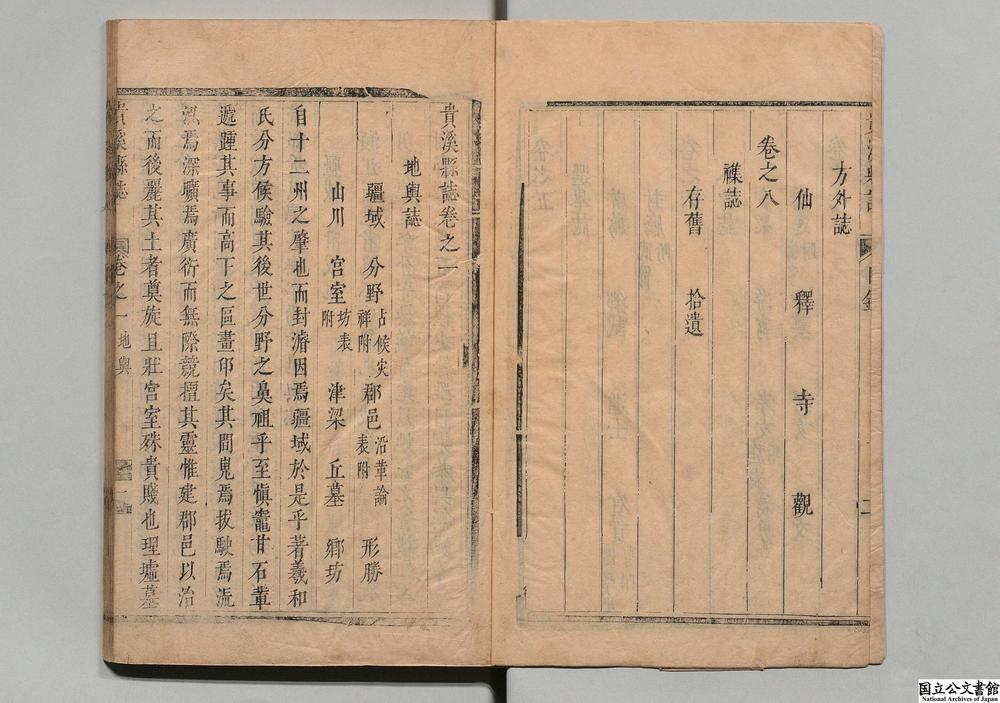 方外誌
仙 釋 寺 觀
卷之八
襍誌
存舊 拾遺
二
貴溪縣誌卷之一
地輿誌
疆域 分野占候災祥附 郡邑沿革論表附 形勝
山川 宮室坊表附 津梁 丘墓 鄉坊
自十二州之肇也而封濬因焉疆域於是乎著羲和
氏分方候驗其後世分野之鼻祖乎至愼竈甘石輩
遞踵其事而高下之區畫卭矣其間嵬焉拔駛焉流
氿焉深曠焉廣衍而無際競擅其靈惟建郡邑以治
之而後麗其土者奠旋且壯宮室殊貴賤也理墟墓
貴溪縣誌 卷之一 地輿 一
国立公文書館
National Archives of Japan